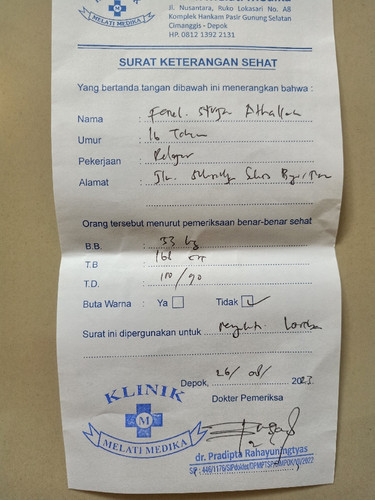 MELATI MEDIKA
Jl. Nusantara, Ruko Lokasari No. A8
Komplek Hankam Pasir Gunung Selatan
Cimanggis - Depok
HP. 0812 1392 2131
SURAT KETERANGAN SEHAT
Yang bertanda tangan dibawah ini menerangkan bahwa :
Nama : Athallah
Umur : 16 Tahun
Pekerjaan : Pelajar
Alamat : Jln.
Orang tersebut menurut pemeriksaan benar-benar sehat
B.B. : 53 kg
T.B : 161 cm
T.D. : 110/90
Buta Warna : Ya Tidak ✓
Surat ini dipergunakan untuk : Lomba
Depok, 26/08/ 2023
Dokter Pemeriksa
KLINIK
M
MELATI MEDIKA
dr. Pradipta Rahayuningtyas